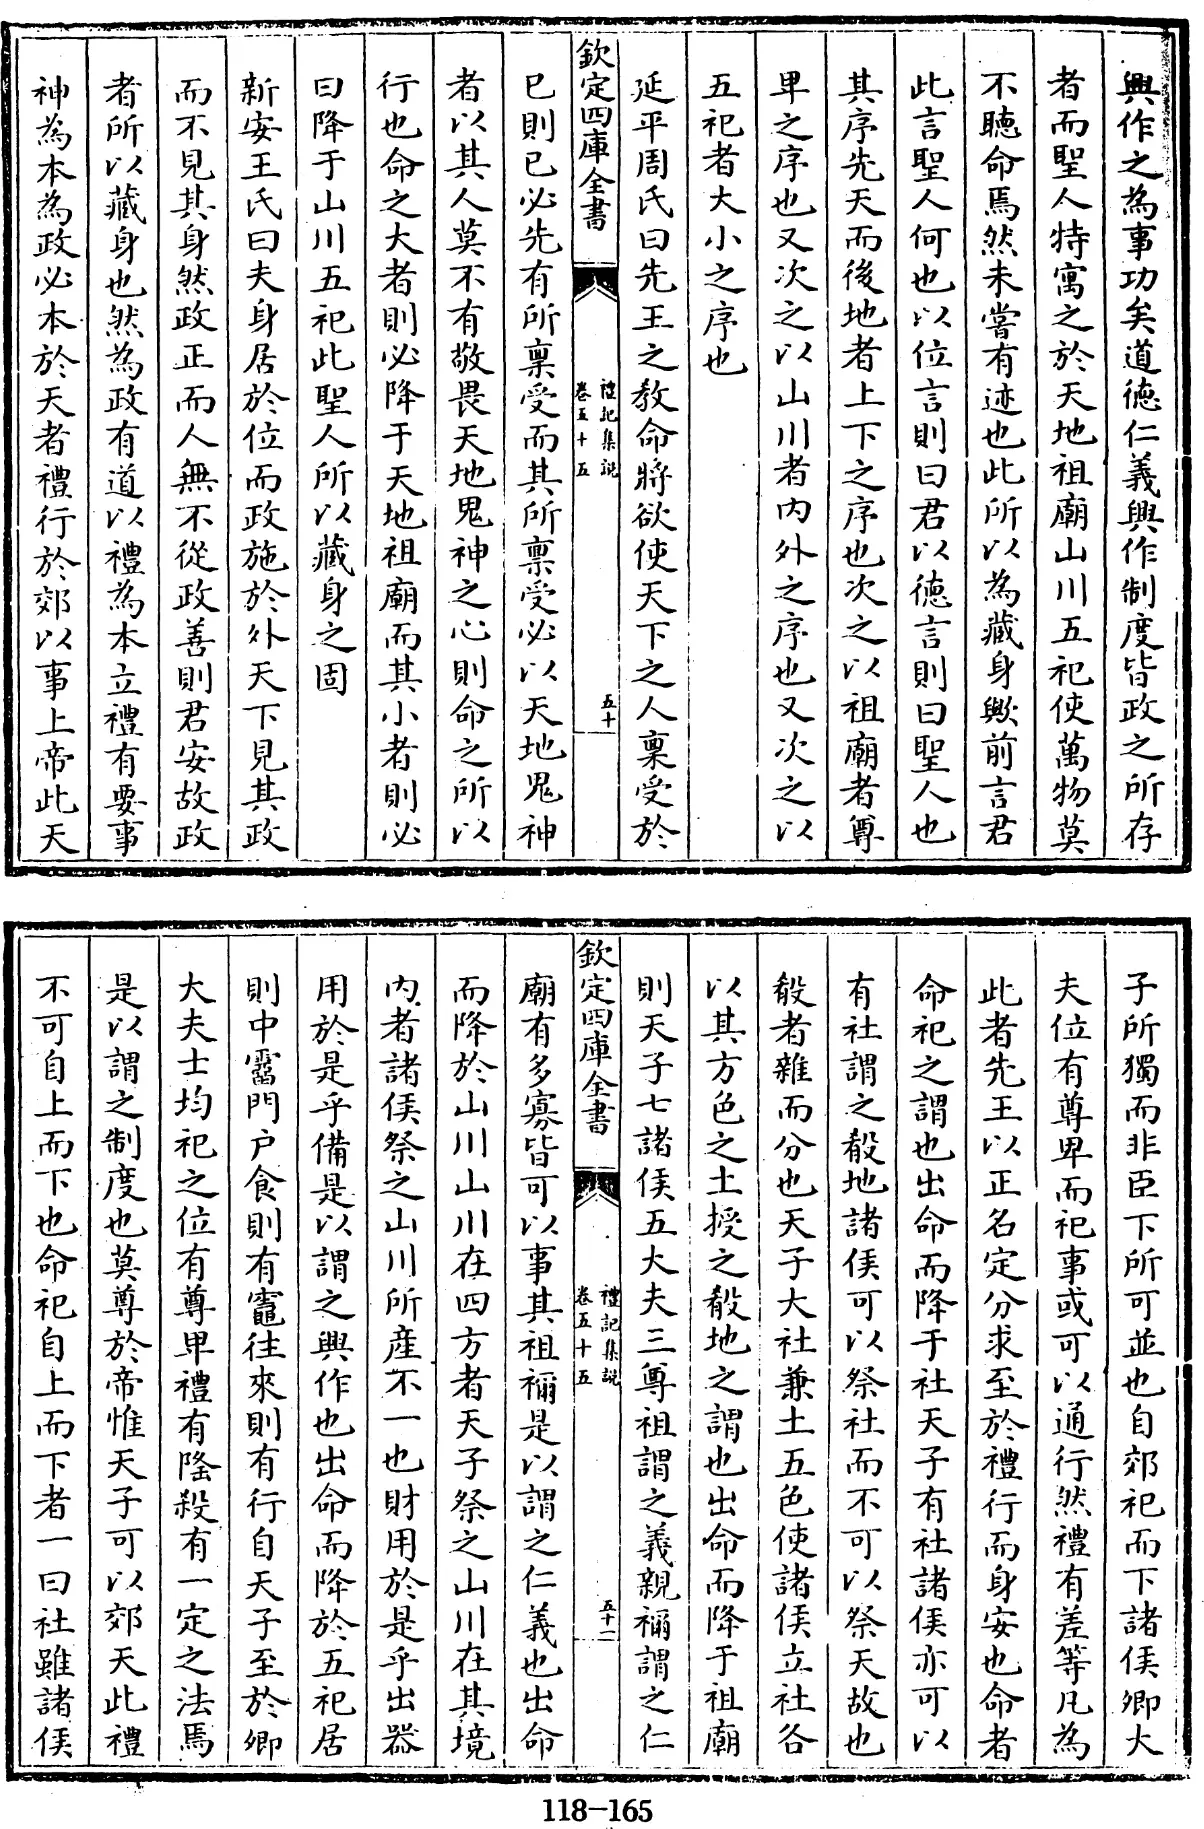 興作之為事功矣道德仁義興作制度皆政之所存
者而聖人特寓之於天地祖廟山川五祀使萬物莫
不聽命焉然未嘗有迹也此所以為藏身歟前言君
此言聖人何也以位言則曰君以德言則曰聖人也
其序先天而後地者上下之序也次之以祖廟者尊
卑之序也又次之以山川者內外之序也又次之以
五祀者大小之序也
延平周氏曰先王之教命將欲使天下之人稟受於
欽定四庫全書
禮記集說
卷五十五
五十
已則已必先有所稟受而其所稟受必以天地鬼神
者以其人莫不有敬畏天地鬼神之心則命之所以
行也命之大者則必降于天地祖廟而其小者則必
曰降于山川五祀此聖人所以藏身之固
新安王氏曰夫身居於位而政施於外天下見其政
而不見其身然政正而人無不從政善則君安故政
者所以藏身也然為政有道以禮為本立禮有要事
神為本為政必本於天者禮行於郊以事上帝此天
子所獨而非臣下所可並也自郊祀而下諸侯卿大
夫位有尊卑而祀事或可以通行然禮有差等凡為
此者先王以正名定分求至於禮行而身安也命者
命祀之謂也出命而降于社天子有社諸侯亦可以
有社謂之殽地諸侯可以祭社而不可以祭天故也
殽者雜而分也天子大社兼土五色使諸侯立社各
以其方色之土授之殽地之謂也出命而降于祖廟
則天子七諸侯五大夫三尊祖謂之義親禰謂之仁
欽定四庫全書
禮記集說
卷五十五
五十一
廟有多寡皆可以事其祖禰是以謂之仁義也出命
而降於山川山川在四方者天子祭之山川在其境
內者諸侯祭之山川所產不一也財用於是乎出器
用於是乎備是以謂之興作也出命而降於五祀居
則中霤門戶食則有竈往來則有行自天子至於卿
大夫士均祀之位有尊卑禮有隆殺有一定之法焉
是以謂之制度也莫尊於帝惟天子可以郊天此禮
不可自上而下也命祀自上而下者一曰社雖諸侯
118-165